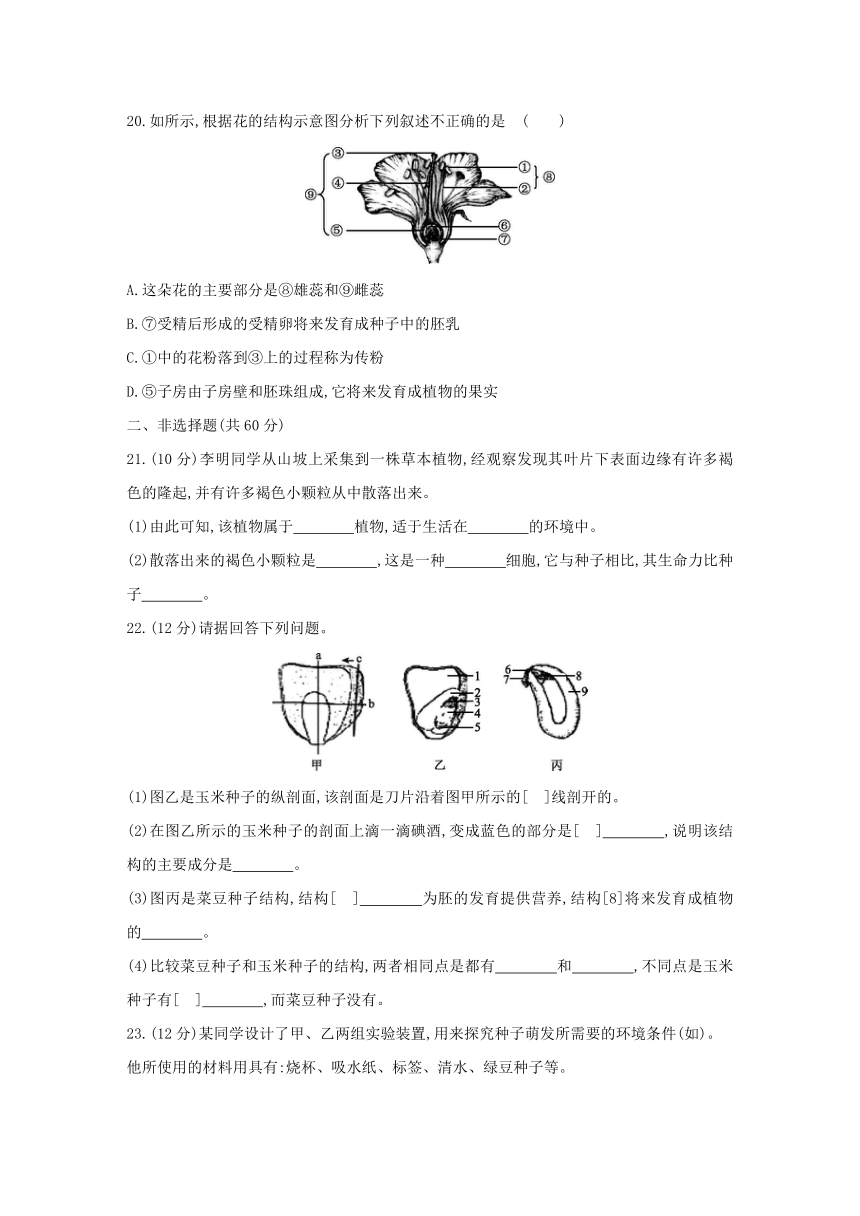 20.如所示,根据花的结构示意图分析下列叙述不正确的是 (  )
③
④
⑨
⑤
①
②
⑧
⑥
⑦
A.这朵花的主要部分是⑧雄蕊和⑨雌蕊
B.⑦受精后形成的受精卵将来发育成种子中的胚乳
C.①中的花粉落到③上的过程称为传粉
D.⑤子房由子房壁和胚珠组成,它将来发育成植物的果实
二、非选择题(共60分)
21.(10分)李明同学从山坡上采集到一株草本植物,经观察发现其叶片下表面边缘有许多褐
色的隆起,并有许多褐色小颗粒从中散落出来。
(1)由此可知,该植物属于________植物,适于生活在________的环境中。
(2)散落出来的褐色小颗粒是________,这是一种________细胞,它与种子相比,其生命力比种
子________。
22.(12分)请据回答下列问题。
a
c
b
甲
1
2
3
4
5
乙
6
7
8
9
丙
(1)图乙是玉米种子的纵剖面,该剖面是刀片沿着图甲所示的[ ]线剖开的。
(2)在图乙所示的玉米种子的剖面上滴一滴碘酒,变成蓝色的部分是[ ]________,说明该结
构的主要成分是________。
(3)图丙是菜豆种子结构,结构[ ]________为胚的发育提供营养,结构[8]将来发育成植物
的________。
(4)比较菜豆种子和玉米种子的结构,两者相同点是都有________和________,不同点是玉米
种子有[ ]________,而菜豆种子没有。
23.(12分)某同学设计了甲、乙两组实验装置,用来探究种子萌发所需要的环境条件(如)。
他所使用的材料用具有:烧杯、吸水纸、标签、清水、绿豆种子等。